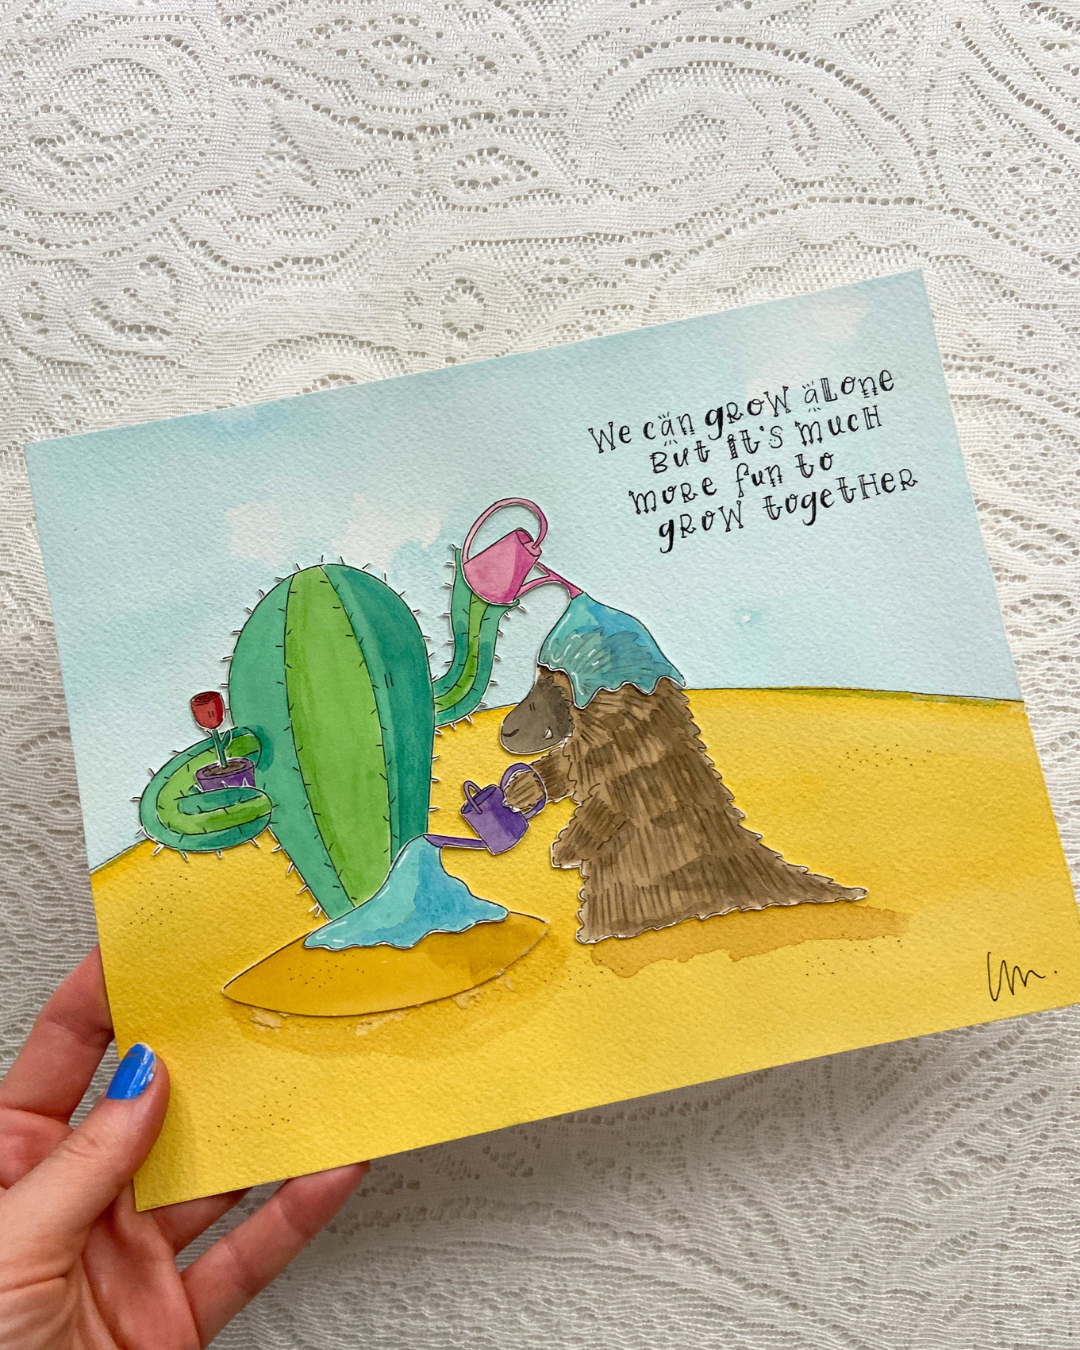 We can grow alone
But it's much
more fun to
grow together